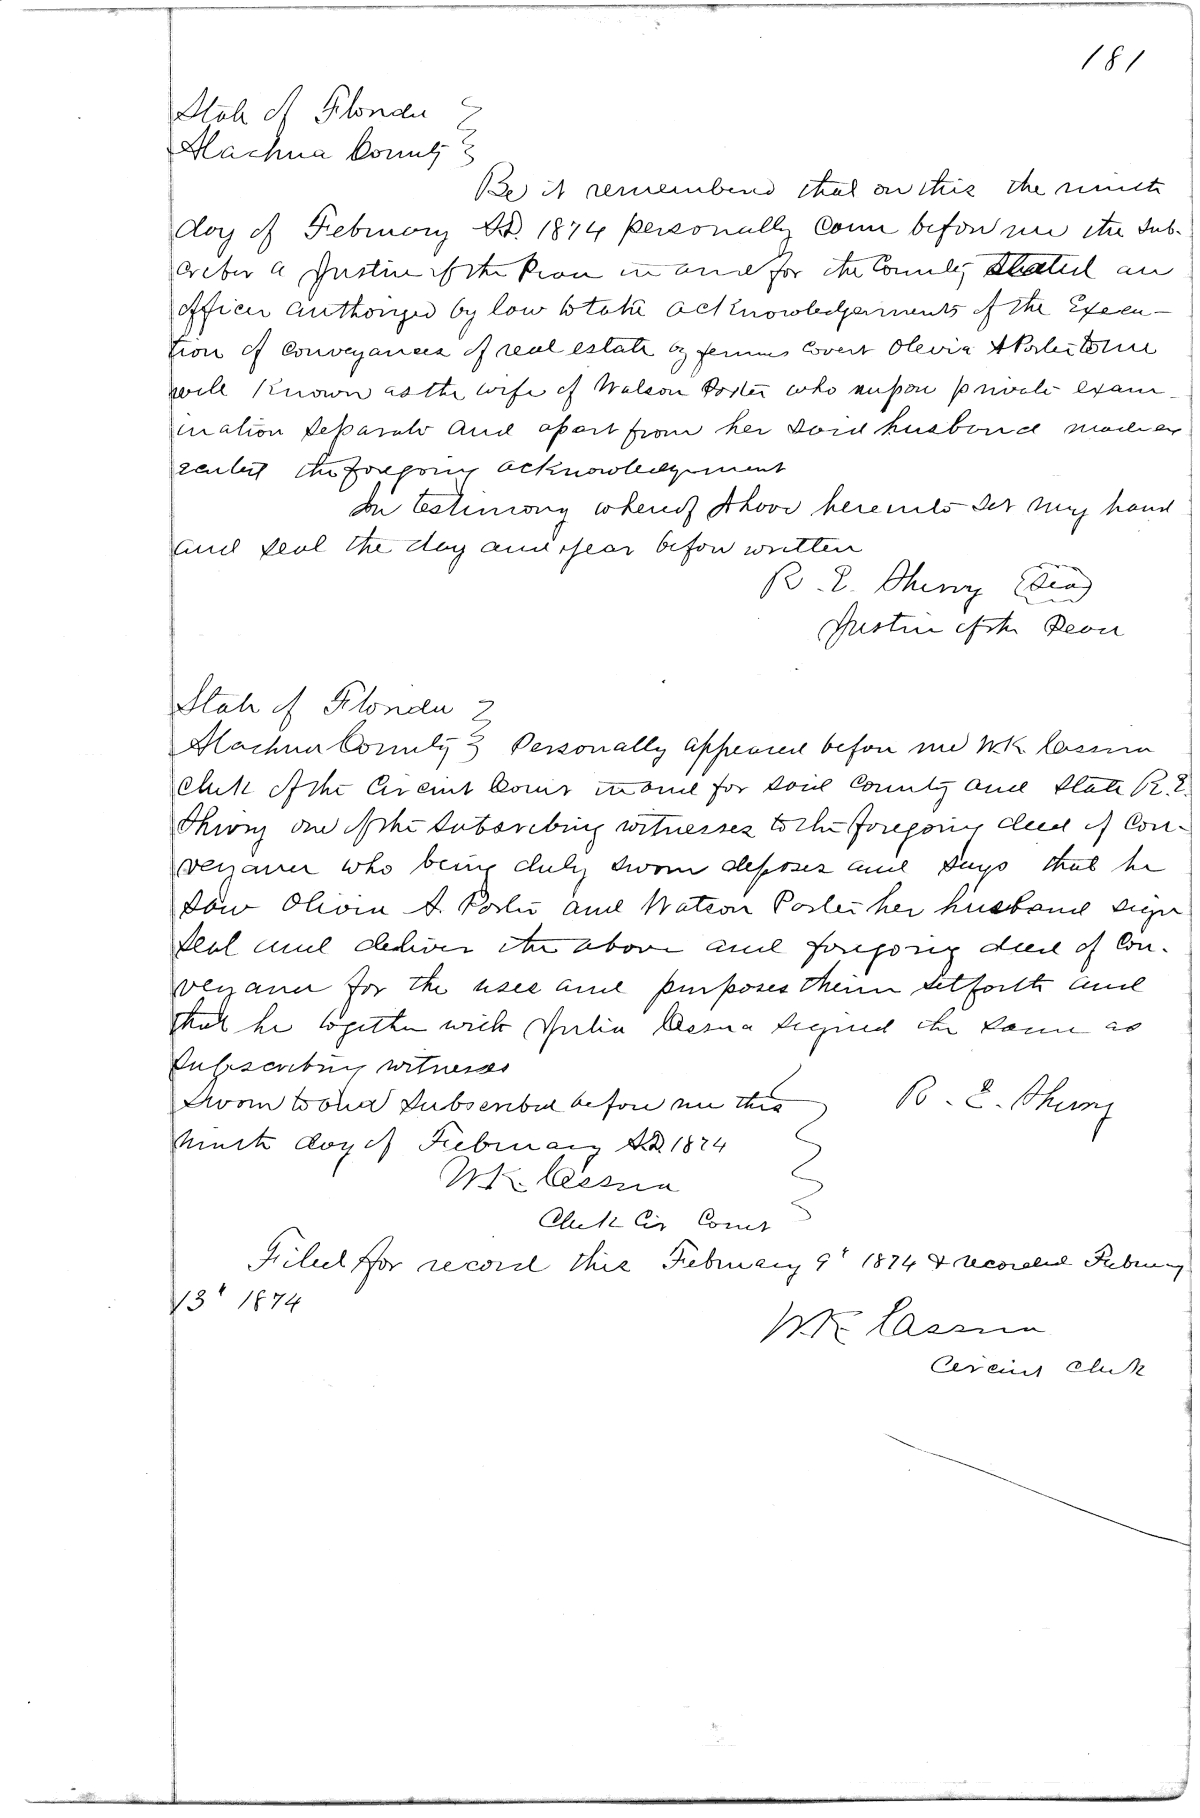 181
State of Florida
Alachua County
Be it remembered that on this the ninth
day of February A.D. 1874 personally came before me the sub-
scriber a Justice of the Peace in and for the County stated an
officer authorized by law to take acknowledgements of the Execu-
tion of conveyances of real estate by femmes covert Olevia A Porter to me
well known as the wife of Watson Porter who uupon private exam-
ination separate and apart from her said husband made ex
the foregoing acknowledgement
In testimony whereof I have hereunto set my hand
and seal the day and year before written
R. E. (Seal)
Justice of the Peace
State of Florida
Alachua County Personally appeared before me W.K. Cessna
Clerk of the Circuit Court in and for said County and State R. E.
one of the subscribing witnesses to the foregoing deed of Con-
veyance who being duly sworn deposes and says that he
saw Olivia A. Porter and Watson Porter her husband sign
seal and deliver the above and foregoing deed of Con-
veyance for the uses and purposes therein set forth and
that he together with Julia Cessna signed the same as
subscribing witnesses
Sworn to and subscribed before me this R. E.
ninth day of February A.D. 1874
W.K. Cessna
Clerk Cir Court
Filed for record this February 9" 1874 & recorded February
13" 1874
W.K. Cessna
Circuit Clerk